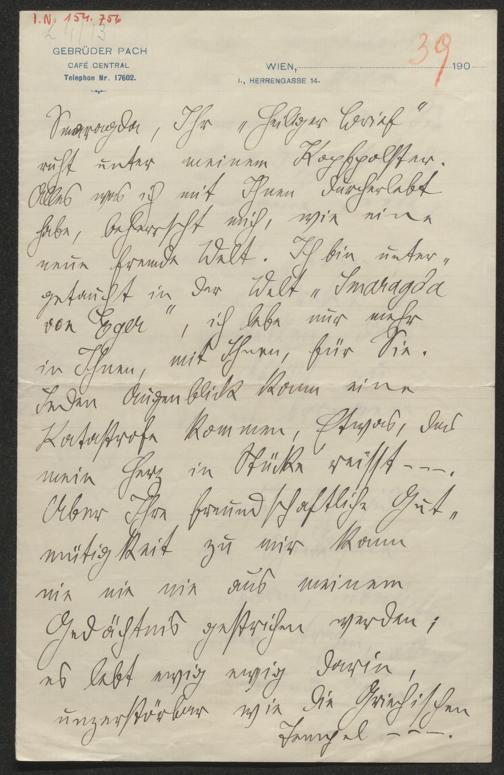 I.N. 154.756
GEBRÜDER PACH
CAFÉ CENTRAL
Telephon Nr. 17602.
39
WIEN, 190
I., HERRENGASSE 14.
Smaragda, Ihr „heiliger Brief“
ruht unter meinem Kopfpolster.
Alles was ich mit Ihnen durchlebt
habe, beherrscht mich, wie eine
neue fremde Welt. Ich bin unter„
getaucht in der Welt „Smaragda
von Eger“, ich lebe nur mehr
in Ihnen, mit Ihnen, für Sie.
Jeden Augenblick kann eine
Katastrofe kommen, Etwas, das
mein Herz in Stücke reisst ---.
Aber Ihre freundschaftliche Gut„
mütigkeit zu mir kann
nie nie nie aus meinem
Gedächtnis gestrichen werden;
es lebt ewig ewig darin,
unzerstörbar wie die Griechischen
Tempel ---.